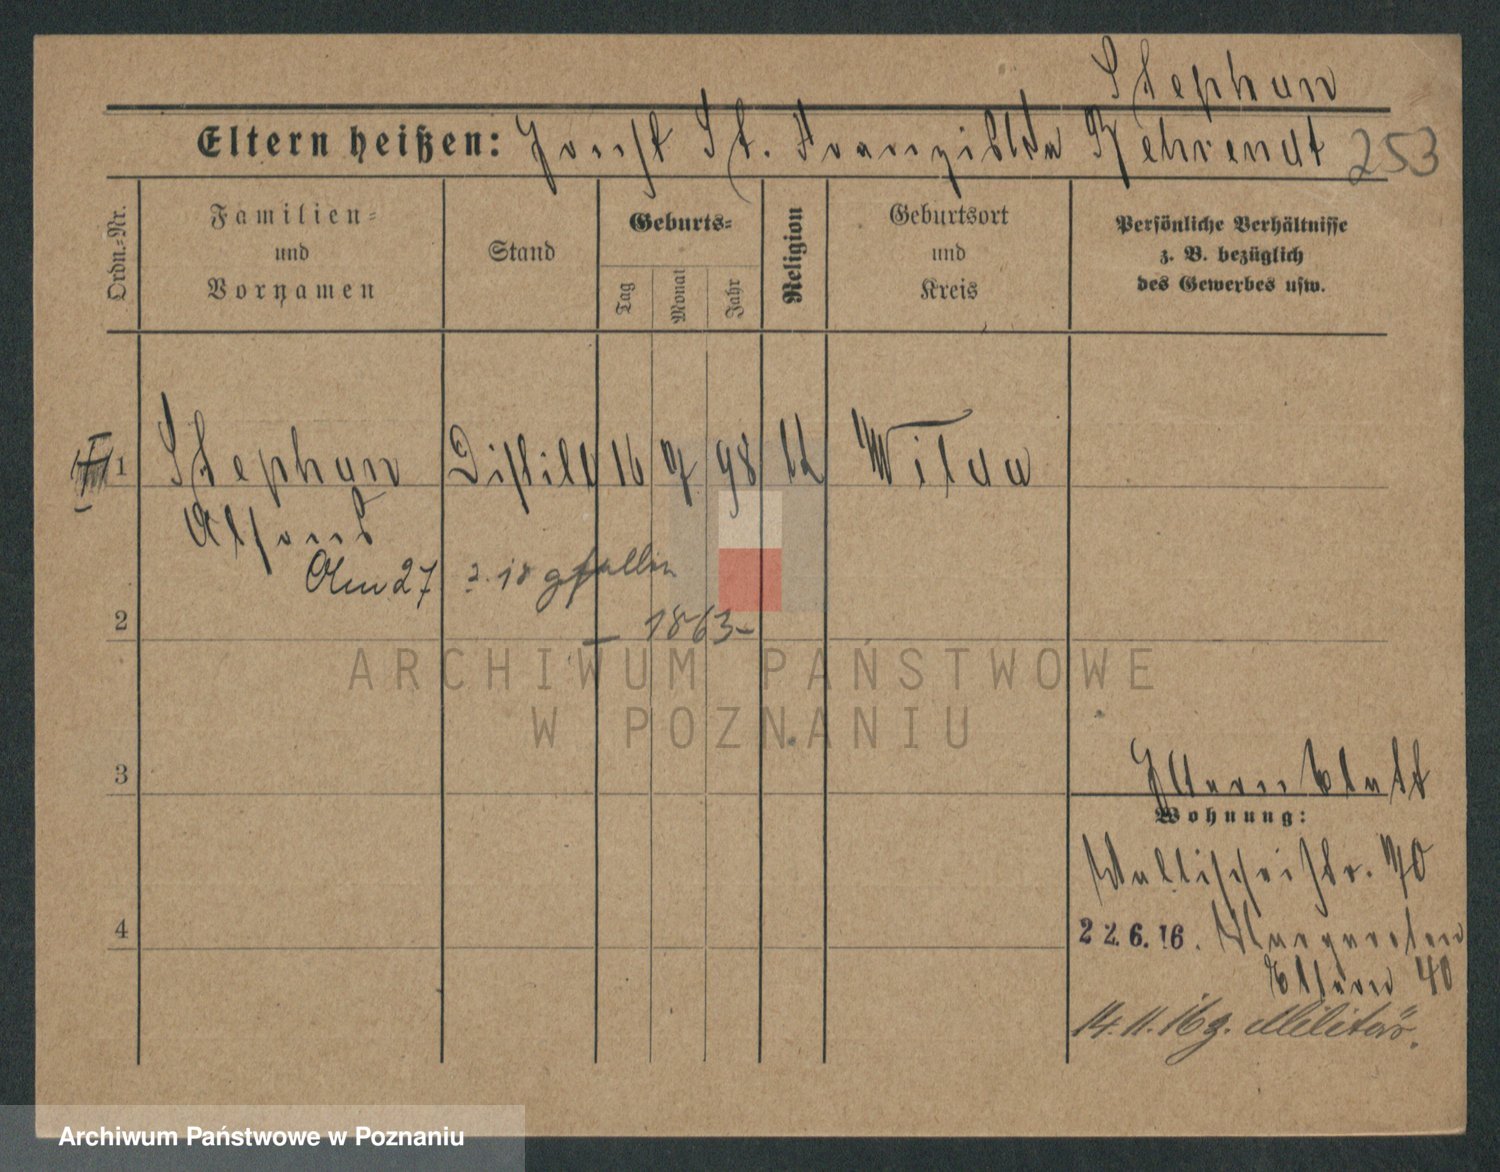 Stephan
Eltern heißen: Josef St. Franziska Behrendt 253
Ordn.-Nr.
Familien-
und
Vornamen
Stand
Geburts-
Tag
Monat
Jahr
Religion
Geburtsort
und
Kreis
Persönliche Verhältnisse
z. B. bezüglich
des Gewerbes usw.
1 Stephan 16 98 Wilda
Alfons
Am 27 2. 18 gefallen
2
– 1863 –
ARCHIWUM PAŃSTWOWE
W POZNANIU
3
Elternblatt
Wohnung:
Wallischeistr. 70
4
22.6.16. Margareten
Eltern 40
14. 11. 16 z. Militär.
Archiwum Państwowe w Poznaniu